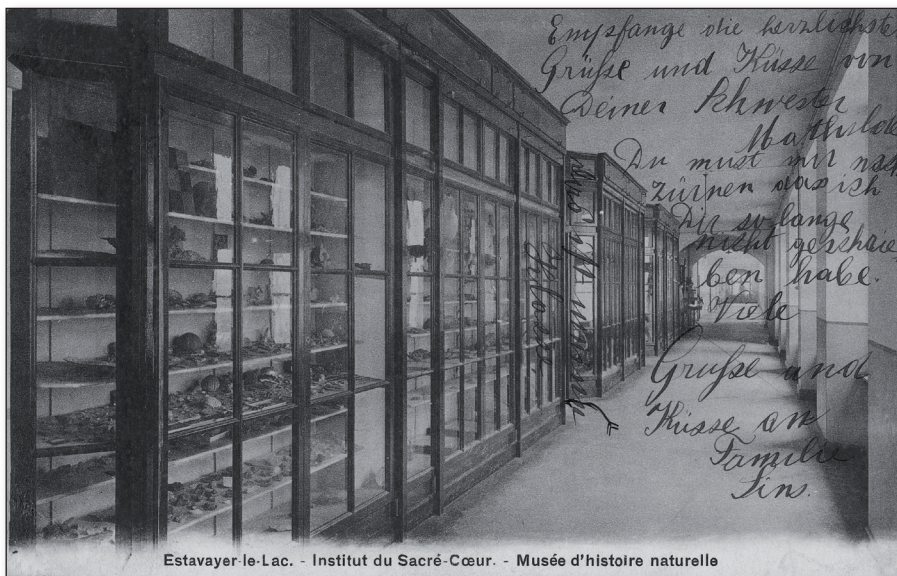 Empfange die herzlichste
Grüße und Küsse von
Deiner Schwester
Mathilde
Du must mir nich
zürnen das ich
Dir so lange
nicht geschrie
ben habe.
Viele
Gruße und
Küsse an
Familie
Estavayer-le-Lac. - Institut du Sacré-Cœur. - Musée d'histoire naturelle